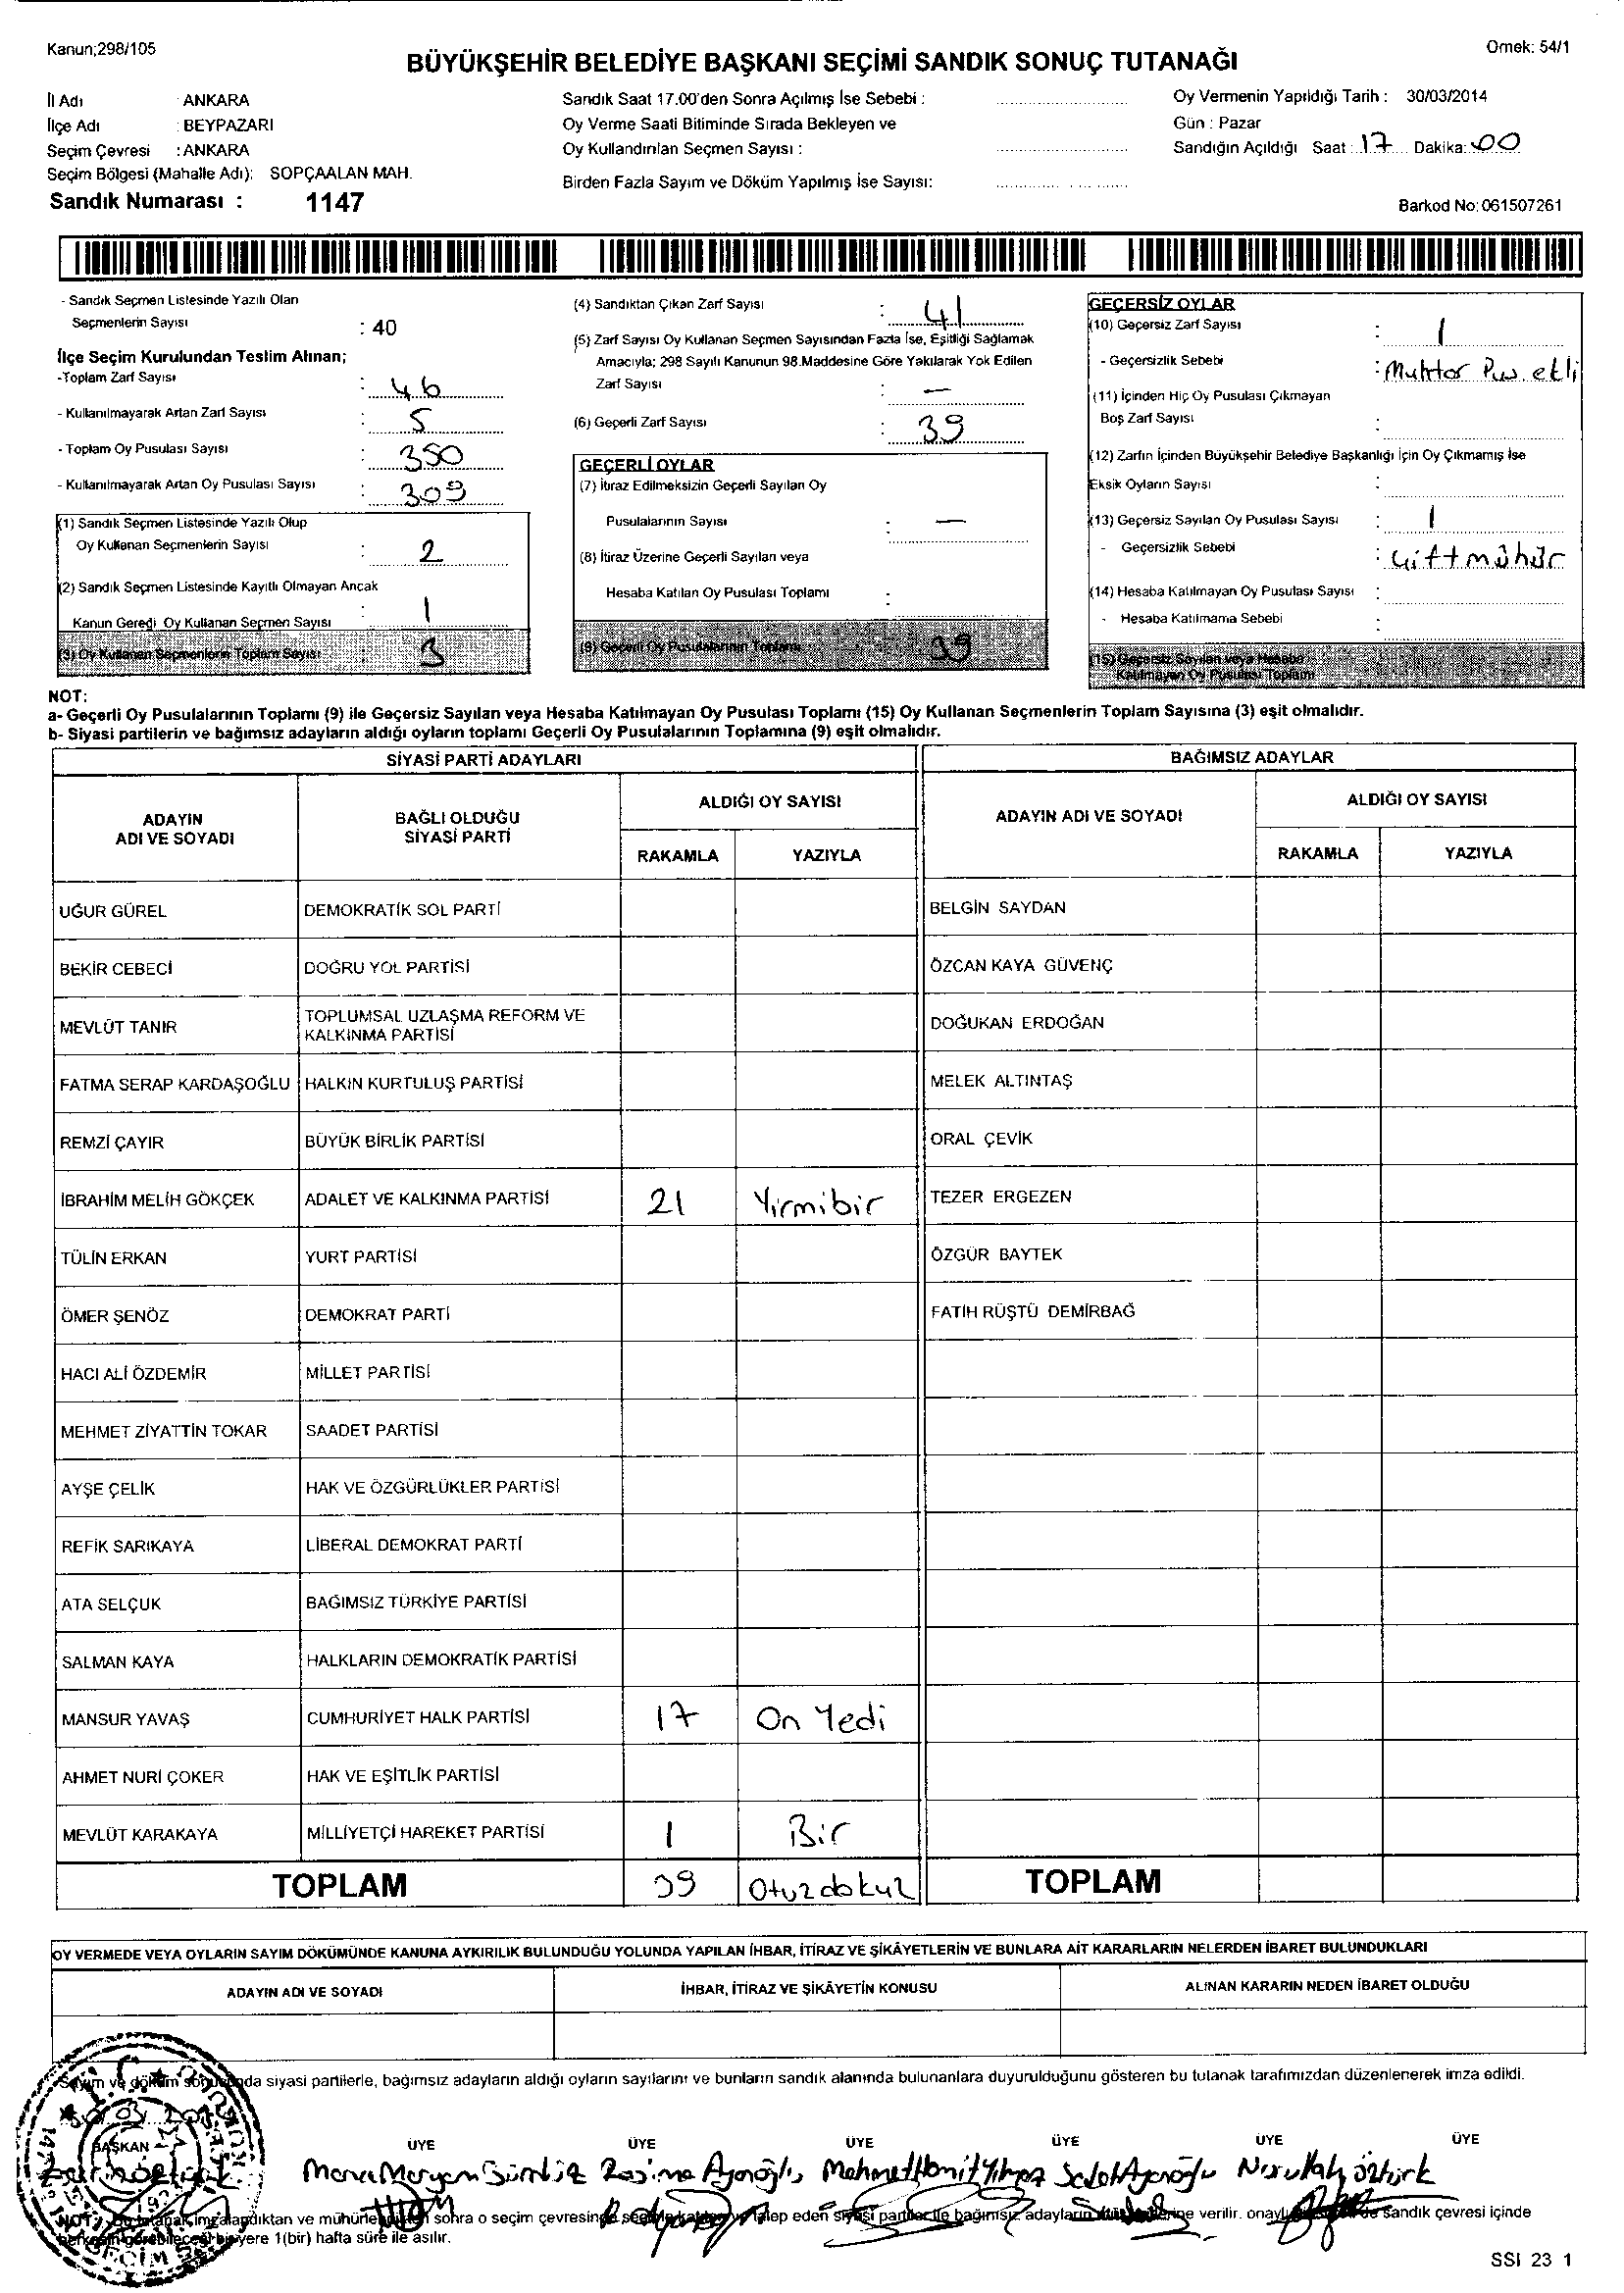 Kanun;298/105
Örnek: 54/1
BÜYÜKŞEHİR BELEDİYE BAŞKANI SEÇİMİ SANDIK SONUÇ TUTANAĞI
İl Adı : ANKARA
İlçe Adı : BEYPAZARI
Seçim Çevresi : ANKARA
Seçim Bölgesi (Mahalle Adı): SOPÇAALAN MAH.
Sandık Numarası : 1147
Sandık Saat 17.00'den Sonra Açılmış İse Sebebi :
Oy Verme Saati Bitiminde Sırada Bekleyen ve
Oy Kullandırılan Seçmen Sayısı :
Birden Fazla Sayım ve Döküm Yapılmış İse Sayısı:
Oy Vermenin Yapıldığı Tarih : 30/03/2014
Gün : Pazar
Sandığın Açıldığı Saat : 17 Dakika: 00
Barkod No: 061507261
- Sandık Seçmen Listesinde Yazılı Olan
Seçmenlerin Sayısı : 40
İlçe Seçim Kurulundan Teslim Alınan;
-Toplam Zarf Sayısı : 46
- Kullanılmayarak Artan Zarf Sayısı : 5
- Toplam Oy Pusulası Sayısı : 350
- Kullanılmayarak Artan Oy Pusulası Sayısı : 309
(1) Sandık Seçmen Listesinde Yazılı Olup
Oy Kullanan Seçmenlerin Sayısı : 2
(2) Sandık Seçmen Listesinde Kayıtlı Olmayan Ancak
Kanun Gereği Oy Kullanan Seçmen Sayısı : 1
(3) Oy Kullanan Seçmenlerin Toplam Sayısı : 3
(4) Sandıktan Çıkan Zarf Sayısı : 41
(5) Zarf Sayısı Oy Kullanan Seçmen Sayısından Fazla İse, Eşitliği Sağlamak
Amacıyla; 298 Sayılı Kanunun 98.Maddesine Göre Yakılarak Yok Edilen
Zarf Sayısı : —
(6) Geçerli Zarf Sayısı : 39
GEÇERLİ OYLAR
(7) İtiraz Edilmeksizin Geçerli Sayılan Oy
Pusulalarının Sayısı : —
(8) İtiraz Üzerine Geçerli Sayılan veya
Hesaba Katılan Oy Pusulası Toplamı :
(9) Geçerli Oy Pusulalarının Toplamı 39
GEÇERSİZ OYLAR
(10) Geçersiz Zarf Sayısı : 1
- Geçersizlik Sebebi : Muhtar Pus. ekli
(11) İçinden Hiç Oy Pusulası Çıkmayan
Boş Zarf Sayısı :
(12) Zarfın İçinden Büyükşehir Belediye Başkanlığı İçin Oy Çıkmamış İse
Eksik Oyların Sayısı :
(13) Geçersiz Sayılan Oy Pusulası Sayısı : 1
- Geçersizlik Sebebi : Çift mühür
(14) Hesaba Katılmayan Oy Pusulası Sayısı :
- Hesaba Katılmama Sebebi :
(15) Geçersiz Sayılan veya Hesaba
Katılmayan Oy Pusulası Toplamı
NOT:
a- Geçerli Oy Pusulalarının Toplamı (9) ile Geçersiz Sayılan veya Hesaba Katılmayan Oy Pusulası Toplamı (15) Oy Kullanan Seçmenlerin Toplam Sayısına (3) eşit olmalıdır.
b- Siyasi partilerin ve bağımsız adayların aldığı oyların toplamı Geçerli Oy Pusulalarının Toplamına (9) eşit olmalıdır.
SİYASİ PARTİ ADAYLARI
BAĞIMSIZ ADAYLAR
ADAYIN
ADI VE SOYADI
BAĞLI OLDUĞU
SİYASİ PARTİ
ALDIĞI OY SAYISI
RAKAMLA YAZIYLA
ADAYIN ADI VE SOYADI
ALDIĞI OY SAYISI
RAKAMLA YAZIYLA
UĞUR GÜREL DEMOKRATİK SOL PARTİ BELGİN SAYDAN
BEKİR CEBECİ DOĞRU YOL PARTİSİ ÖZCAN KAYA GÜVENÇ
MEVLÜT TANIR TOPLUMSAL UZLAŞMA REFORM VE
KALKINMA PARTİSİ DOĞUKAN ERDOĞAN
FATMA SERAP KARDAŞOĞLU HALKIN KURTULUŞ PARTİSİ MELEK ALTINTAŞ
REMZİ ÇAYIR BÜYÜK BİRLİK PARTİSİ ORAL ÇEVİK
İBRAHİM MELİH GÖKÇEK ADALET VE KALKINMA PARTİSİ 21 Yirmibir TEZER ERGEZEN
TÜLİN ERKAN YURT PARTİSİ ÖZGÜR BAYTEK
ÖMER ŞENÖZ DEMOKRAT PARTİ FATİH RÜŞTÜ DEMİRBAĞ
HACI ALİ ÖZDEMİR MİLLET PARTİSİ
MEHMET ZİYATTİN TOKAR SAADET PARTİSİ
AYŞE ÇELİK HAK VE ÖZGÜRLÜKLER PARTİSİ
REFİK SARIKAYA LİBERAL DEMOKRAT PARTİ
ATA SELÇUK BAĞIMSIZ TÜRKİYE PARTİSİ
SALMAN KAYA HALKLARIN DEMOKRATİK PARTİSİ
MANSUR YAVAŞ CUMHURİYET HALK PARTİSİ 17 On Yedi
AHMET NURİ ÇOKER HAK VE EŞİTLİK PARTİSİ
MEVLÜT KARAKAYA MİLLİYETÇİ HAREKET PARTİSİ 1 Bir
TOPLAM 39 Otuzdokuz TOPLAM
OY VERMEDE VEYA OYLARIN SAYIM DÖKÜMÜNDE KANUNA AYKIRILIK BULUNDUĞU YOLUNDA YAPILAN İHBAR, İTİRAZ VE ŞİKÂYETLERİN VE BUNLARA AİT KARARLARIN NELERDEN İBARET BULUNDUKLARI
ADAYIN ADI VE SOYADI İHBAR, İTİRAZ VE ŞİKÂYETİN KONUSU ALINAN KARARIN NEDEN İBARET OLDUĞU
Sayım ve döküm sonucunda siyasi partilerle, bağımsız adayların aldığı oyların sayılarını ve bunların sandık alanında bulunanlara duyurulduğunu gösteren bu tutanak tarafımızdan düzenlenerek imza edildi.
BAŞKAN ÜYE ÜYE ÜYE ÜYE ÜYE ÜYE
Merve Meryem Gündüz Rasime Ayanoğlu Mehmet Hamit Yılmaz Sedat Ayanoğlu Nurullah Öztürk
NOT: Bu tutanak imzalandıktan ve mühürlendikten sonra o seçim çevresinde seçime katılan ve talep eden siyasi partiler ile bağımsız adayların verilir. sandık çevresi içinde
herkesin görebileceği bir yere 1(bir) hafta süre ile asılır.
SSI 23 1